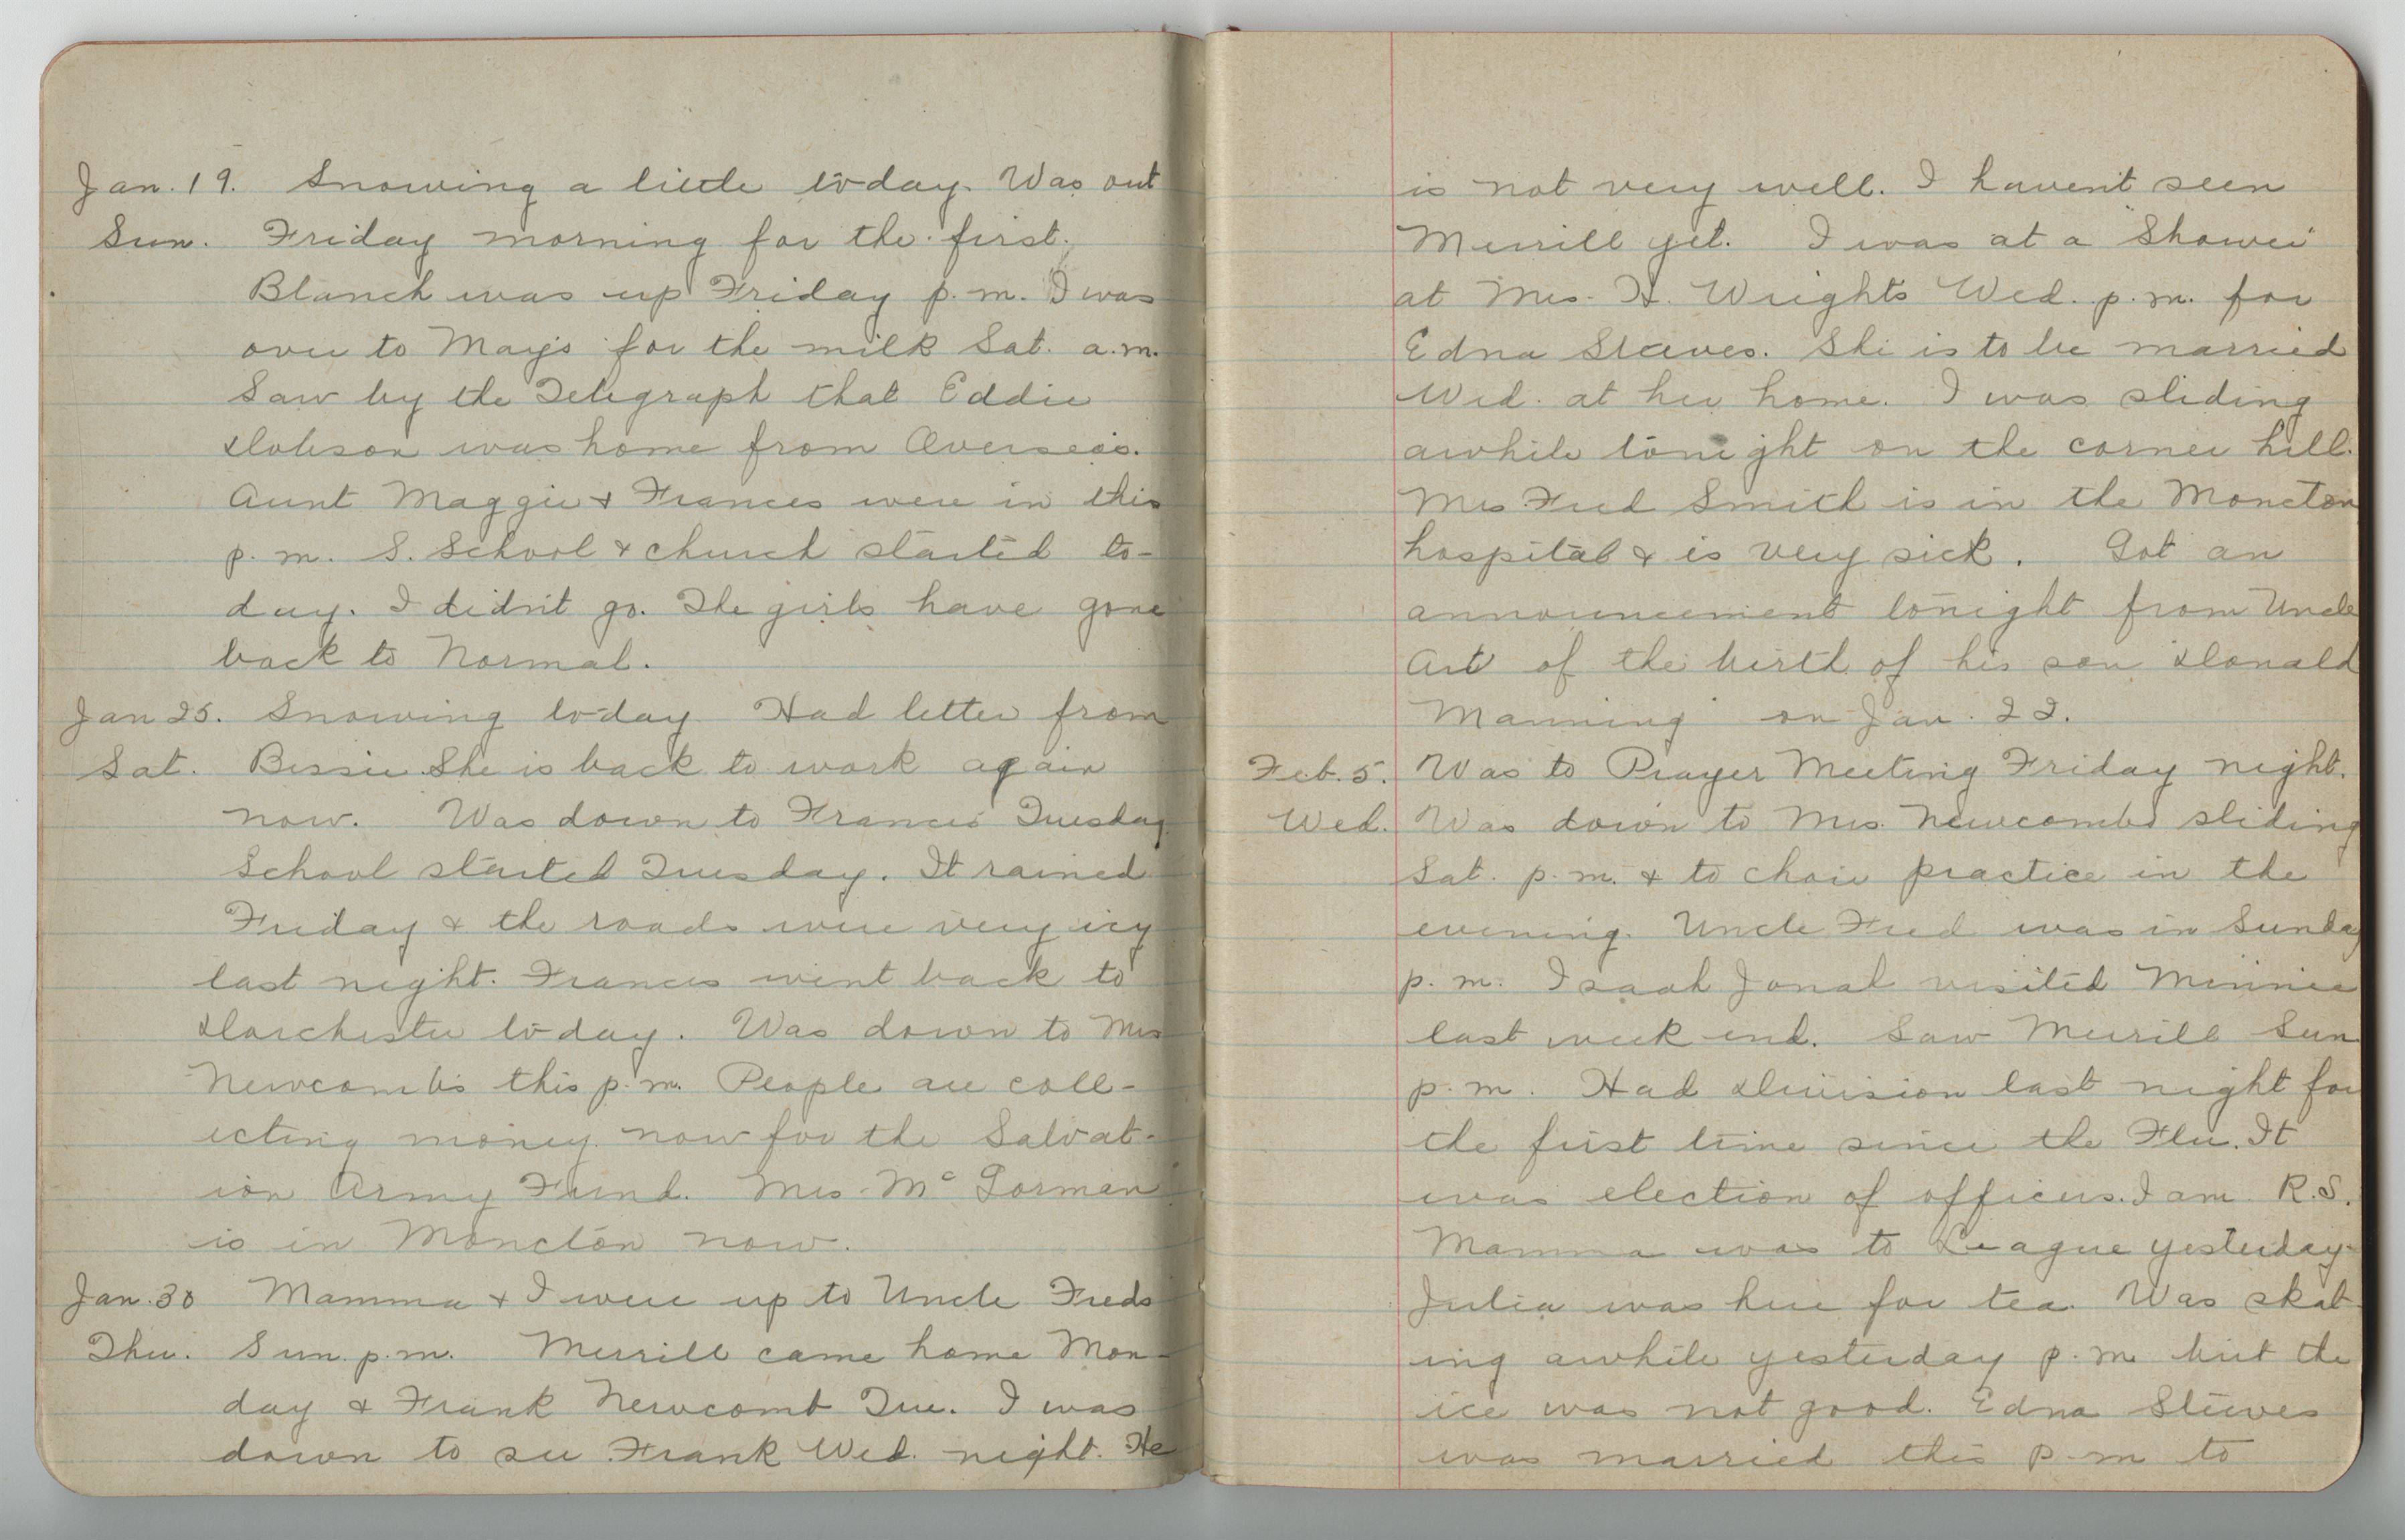 Jan. 19. Snowing a little to-day. Was out
Sun. Friday morning for the first.
Blanch was up Friday p.m. I was
over to May's for the milk Sat. a.m.
Saw by the Telegraph that Eddie
Dobson was home from Overseas.
Aunt Maggie & Frances were in this
p.m. S. School & church started to-
day. I didn't go. The girls have gone
back to Normal.
Jan 25. Snowing to-day. Had letter from
Sat. Bessie. She is back to work again
now. Was down to Frances Tuesday
School started Tuesday. It rained
Friday & the roads were very icy
last night. Frances went back to
Dorchester to-day. Was down to Mrs
Newcomb's this p.m. People are coll-
ecting money now for the Salvat-
ion Army Fund. Mrs. Mc Gorman
is in Moncton now.
Jan. 30 Mamma & I were up to Uncle Freds
Thu. Sun. p.m. Merrill came home Mon-
day & Frank Newcomb Tue. I was
down to see Frank Wed. night. He
is not very well. I haven't seen
Merrill yet. I was at a "Shower"
at Mrs. H. Wrights Wed. p.m. for
Edna Steeves. She is to be married
Wed. at her home. I was sliding
awhile tonight on the corner hill.
Mrs Fred Smith is in the Moncton
hospital & is very sick. Got an
announcement tonight from Uncle
Art of the birth of his son Donald
Manning on Jan. 22.
Feb. 5. Was to Prayer Meeting Friday night.
Wed. Was down to Mrs. Newcombs sliding
Sat. p.m. & to choir practice in the
evening. Uncle Fred was in Sunday
p.m. Isaah Jonah visited Minnie
last week end. Saw Merrill Sun
p.m. Had Division last night for
the first time since the Flu. It
was election of officers. I am R.S.
Mamma was to League yesterday.
Julia was here for tea. Was skat-
ing awhile yesterday p.m. but the
ice was not good. Edna Steeves
was married this p.m to